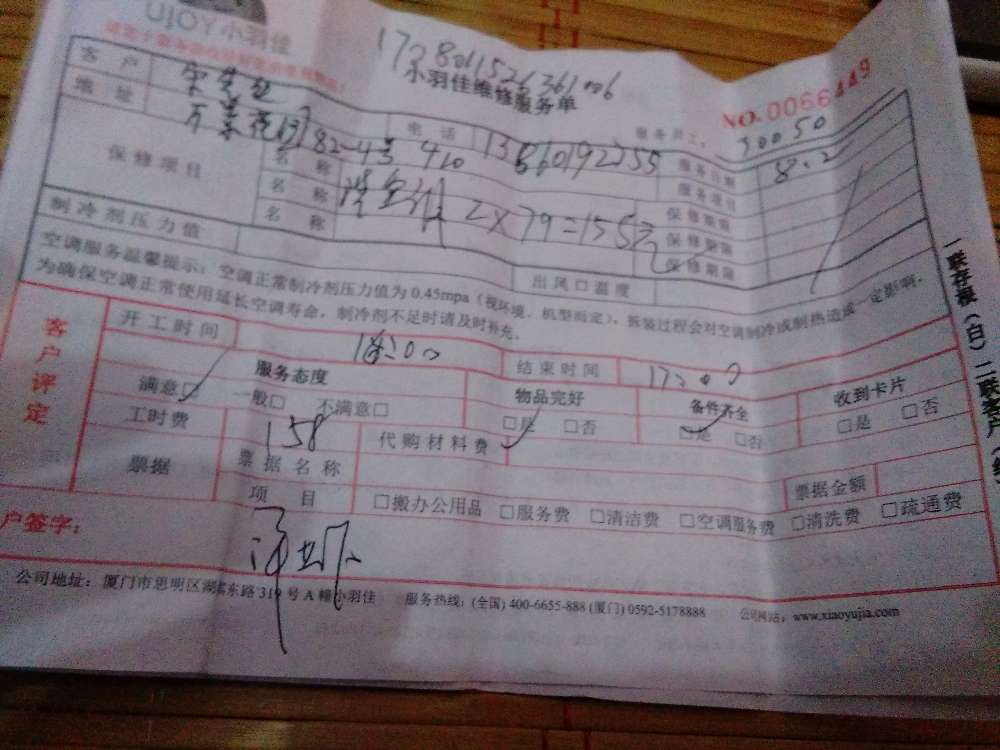 UJOY小羽佳
小羽佳维修服务单
NO.0066449
客户 宋先生 电话 服务员工: 30050
地址 82-4号 410 服务日期 8.2
保修项目 名称 服务项目
名称 洗空调 2×79=158元 保修期限
名称 保修期限
保修期限
制冷剂压力值 出风口温度
空调服务温馨提示:空调正常制冷剂压力值为0.45mpa(视环境、机型而定)、拆装过程会对空调制冷或制热造成一定影响,
为确保空调正常使用延长空调寿命,制冷剂不足时请及时补充。
客户评定
开工时间 结束时间
服务态度 物品完好 备件齐全 收到卡片
满意□ 一般□ 不满意□ □是 □否 □是 □否 □是 □否
工时费 158 代购材料费
票据 票据名称 票据金额
项目 □搬办公用品 □服务费 □清洁费 □空调服务费 □清洗费 □疏通费
户签字:
公司地址:厦门市思明区湖滨东路319号A幢小羽佳 服务热线:(全国)400-6655-888(厦门)0592-5178888 公司网站:www.xiaoyujia.com
一联存根(白)二联客户(红